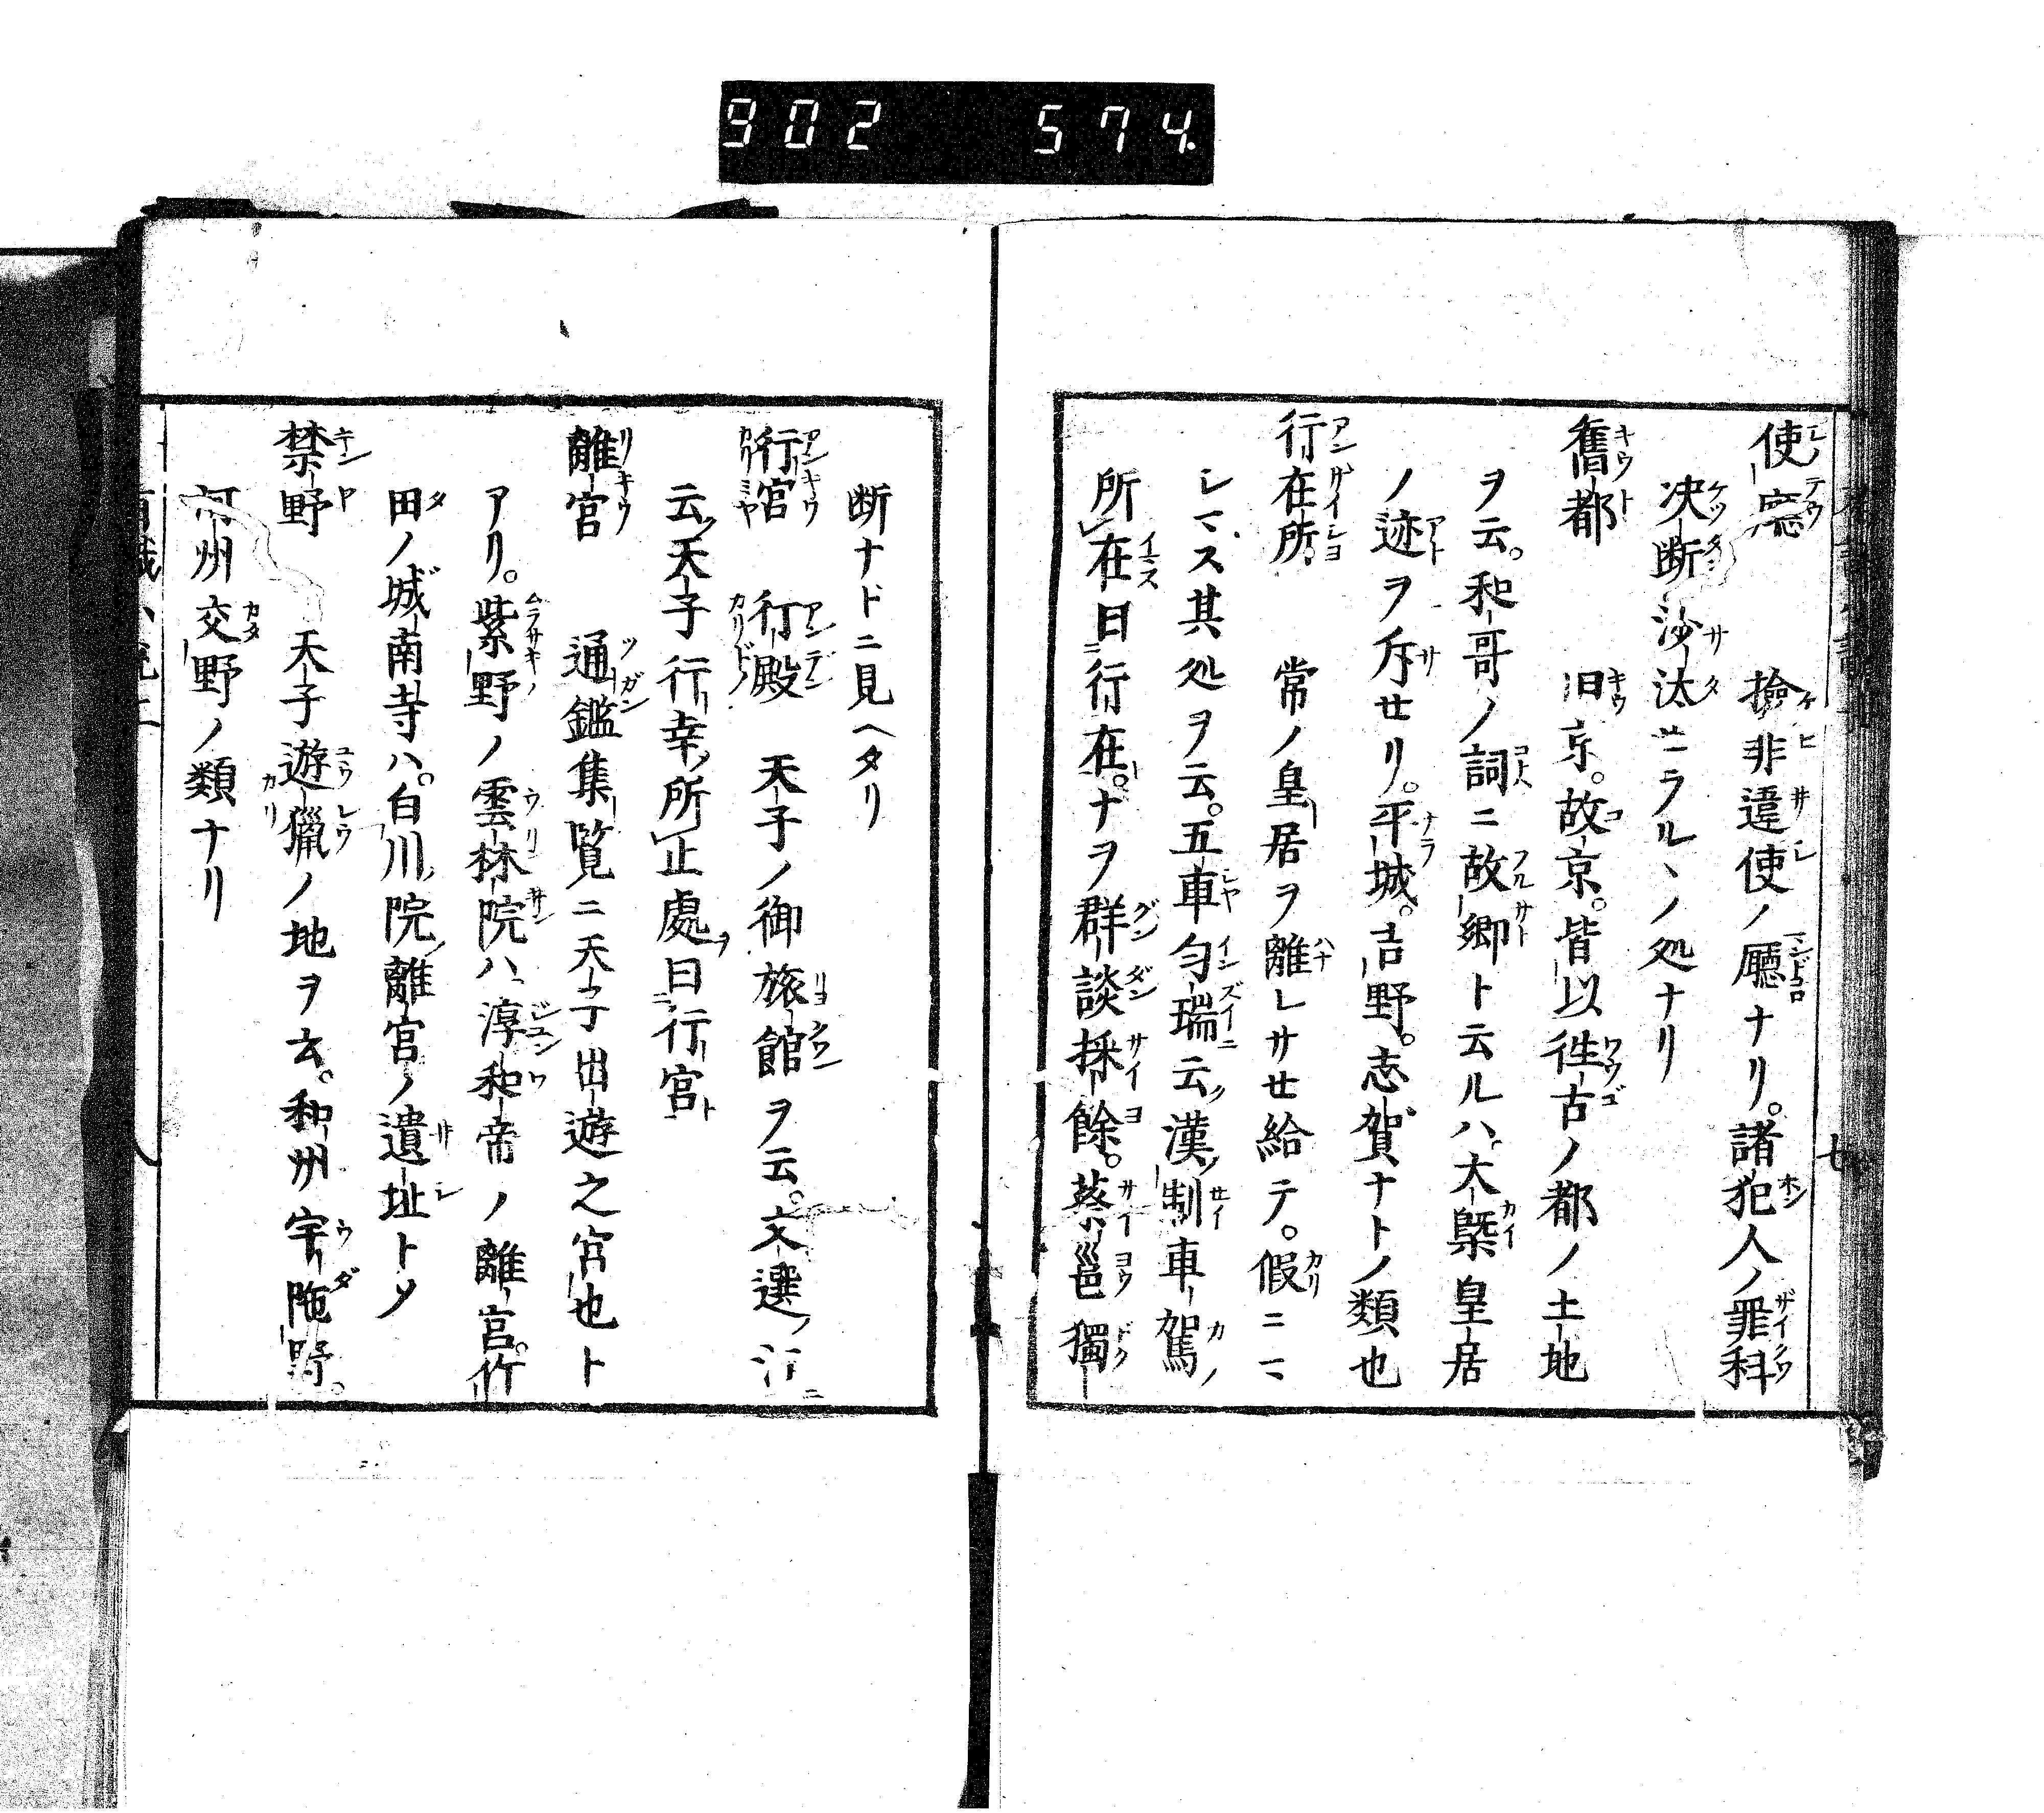 902 574.
使廳 撿非違使ノ廰ナリ。諸犯人ノ罪科
决断沙汰セラルヽノ処ナリ
舊都 旧京。故京。皆以徃古ノ都ノ土地
ヲ云。和哥ノ詞ニ故郷ト云ルハ、大槩皇居
ノ迹ヲ斥セリ。平城。吉野。志賀ナトノ類也
行在所 常ノ皇居ヲ離レサセ給テ。假ニマ
シマス其処ヲ云。五車匀瑞云漢ノ制車駕ノ
所在曰行在。ナヲ群談採餘。蔡邕獨
断ナドニ見ヘタリ
行宮 行殿 天子ノ御旅館ヲ云。文選ノ註ニ
云天子行幸ノ所止處ヲ曰行宮ト
離宮 通鑑集覧ニ天子出遊之宮也ト
アリ。紫野ノ雲林院ハ、淳和帝ノ離宮。竹
田ノ城南寺ハ。白川院ノ離宮ノ遺址トゾ
禁野 天子遊獵ノ地ヲ云。和州宇陁野。
河州交野ノ類ナリ